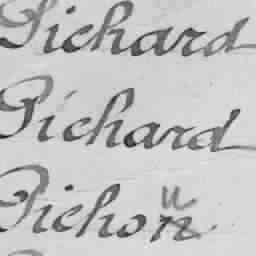 Pichard
Pichard
Pichon